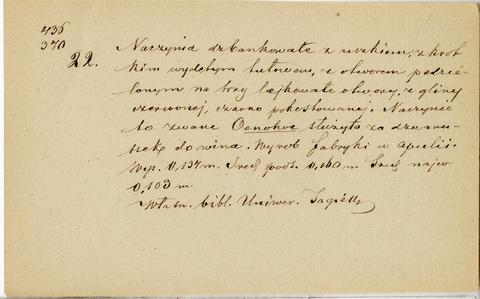 436
370
22. Naczynie dzbankowate z uszkiem, z krót
kim wydętym tułowem, z otworem podzie
lonym na trzy lejkowate otwory, z gliny
czerwonej, czarno pokostowanej. Naczynie
to zwane Oenohoe służyło za dzbanu-
szek do wina. Wyrob fabryki w Apulii.
Wys. 0,137 m. Śred. pods. 0,060 m Śred. najw
0,103 m.
Własn. bibl. Uniwer. Jagiell.